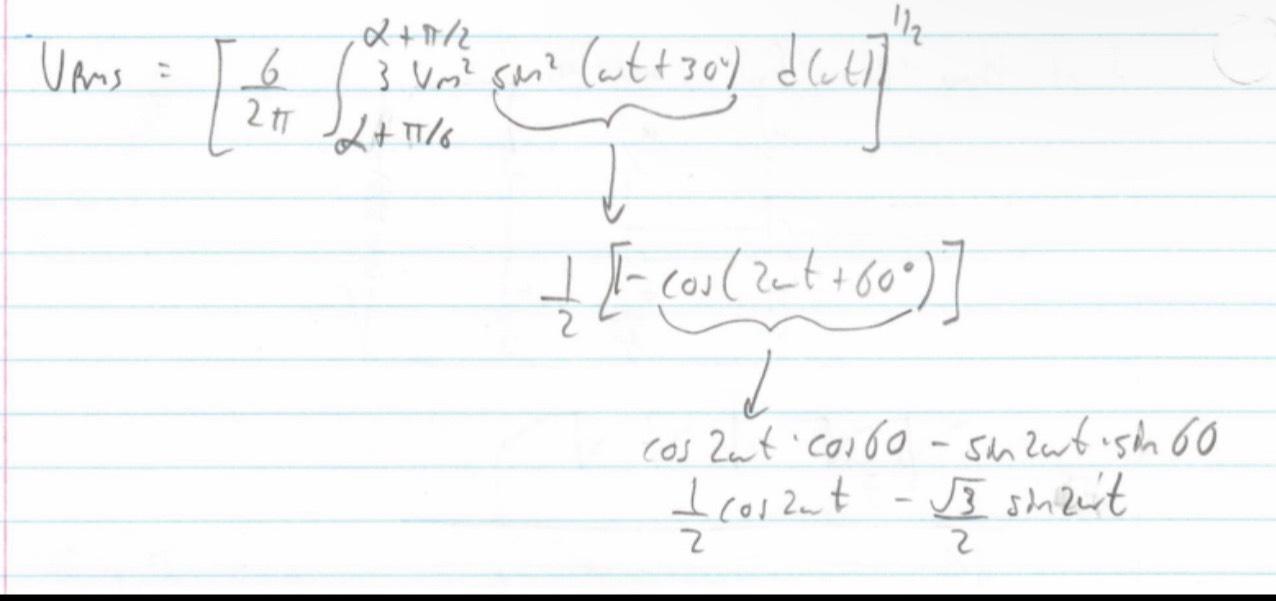 VRms = [ 6/2π ∫_{α+π/6}^{α+π/2} 3 Vm² sin² (ωt+30°) d(ωt) ]^{1/2}
1/2 [1 - cos(2ωt+60°)]
cos 2ωt · cos 60 - sin 2ωt · sin 60
1/2 cos 2ωt - √3/2 sin 2ωt